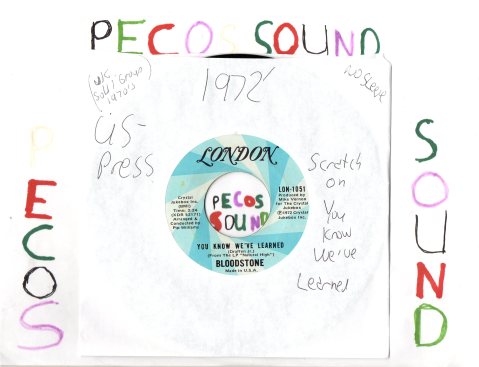 PECOS SOUND
(UK
Soul, Group
1970's)
1972
NO Sleeve
US-
PRESS
Scratch
on
You
Know
We've
Learned
PECOS
SOUND
LONDON
Crystal
Jukebox Inc.
(BMI)
Time: 3:24
Arranged &
Conducted by
Pip Williams
LON-1051
Produced by
Mike Vernon
for The Crystal
Jukebox
℗1972 Crystal
Jukebox Inc.
PECOS
SOUND
YOU KNOW WE'VE LEARNED
(From The LP "Natural High")
BLOODSTONE
Made in U.S.A.